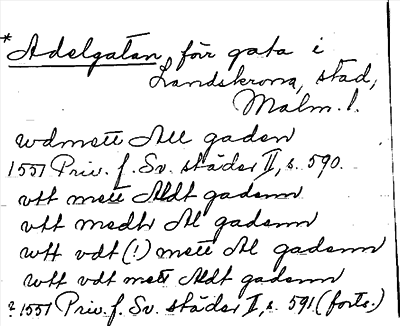 *Adelgatan, förr gata i
Landskrona, stad,
Malm. l.
wdmett All gaden
1551 Priv. f. Sv. städer II, s. 590.
vtt mett Aldt gadenn
vtt medh Al gadenn
wtt vdt (!) mett Al gadenn
wtt vdt mett Aldt gadenn
? 1551 Priv. f. Sv. städer II, s. 591 (forts.)